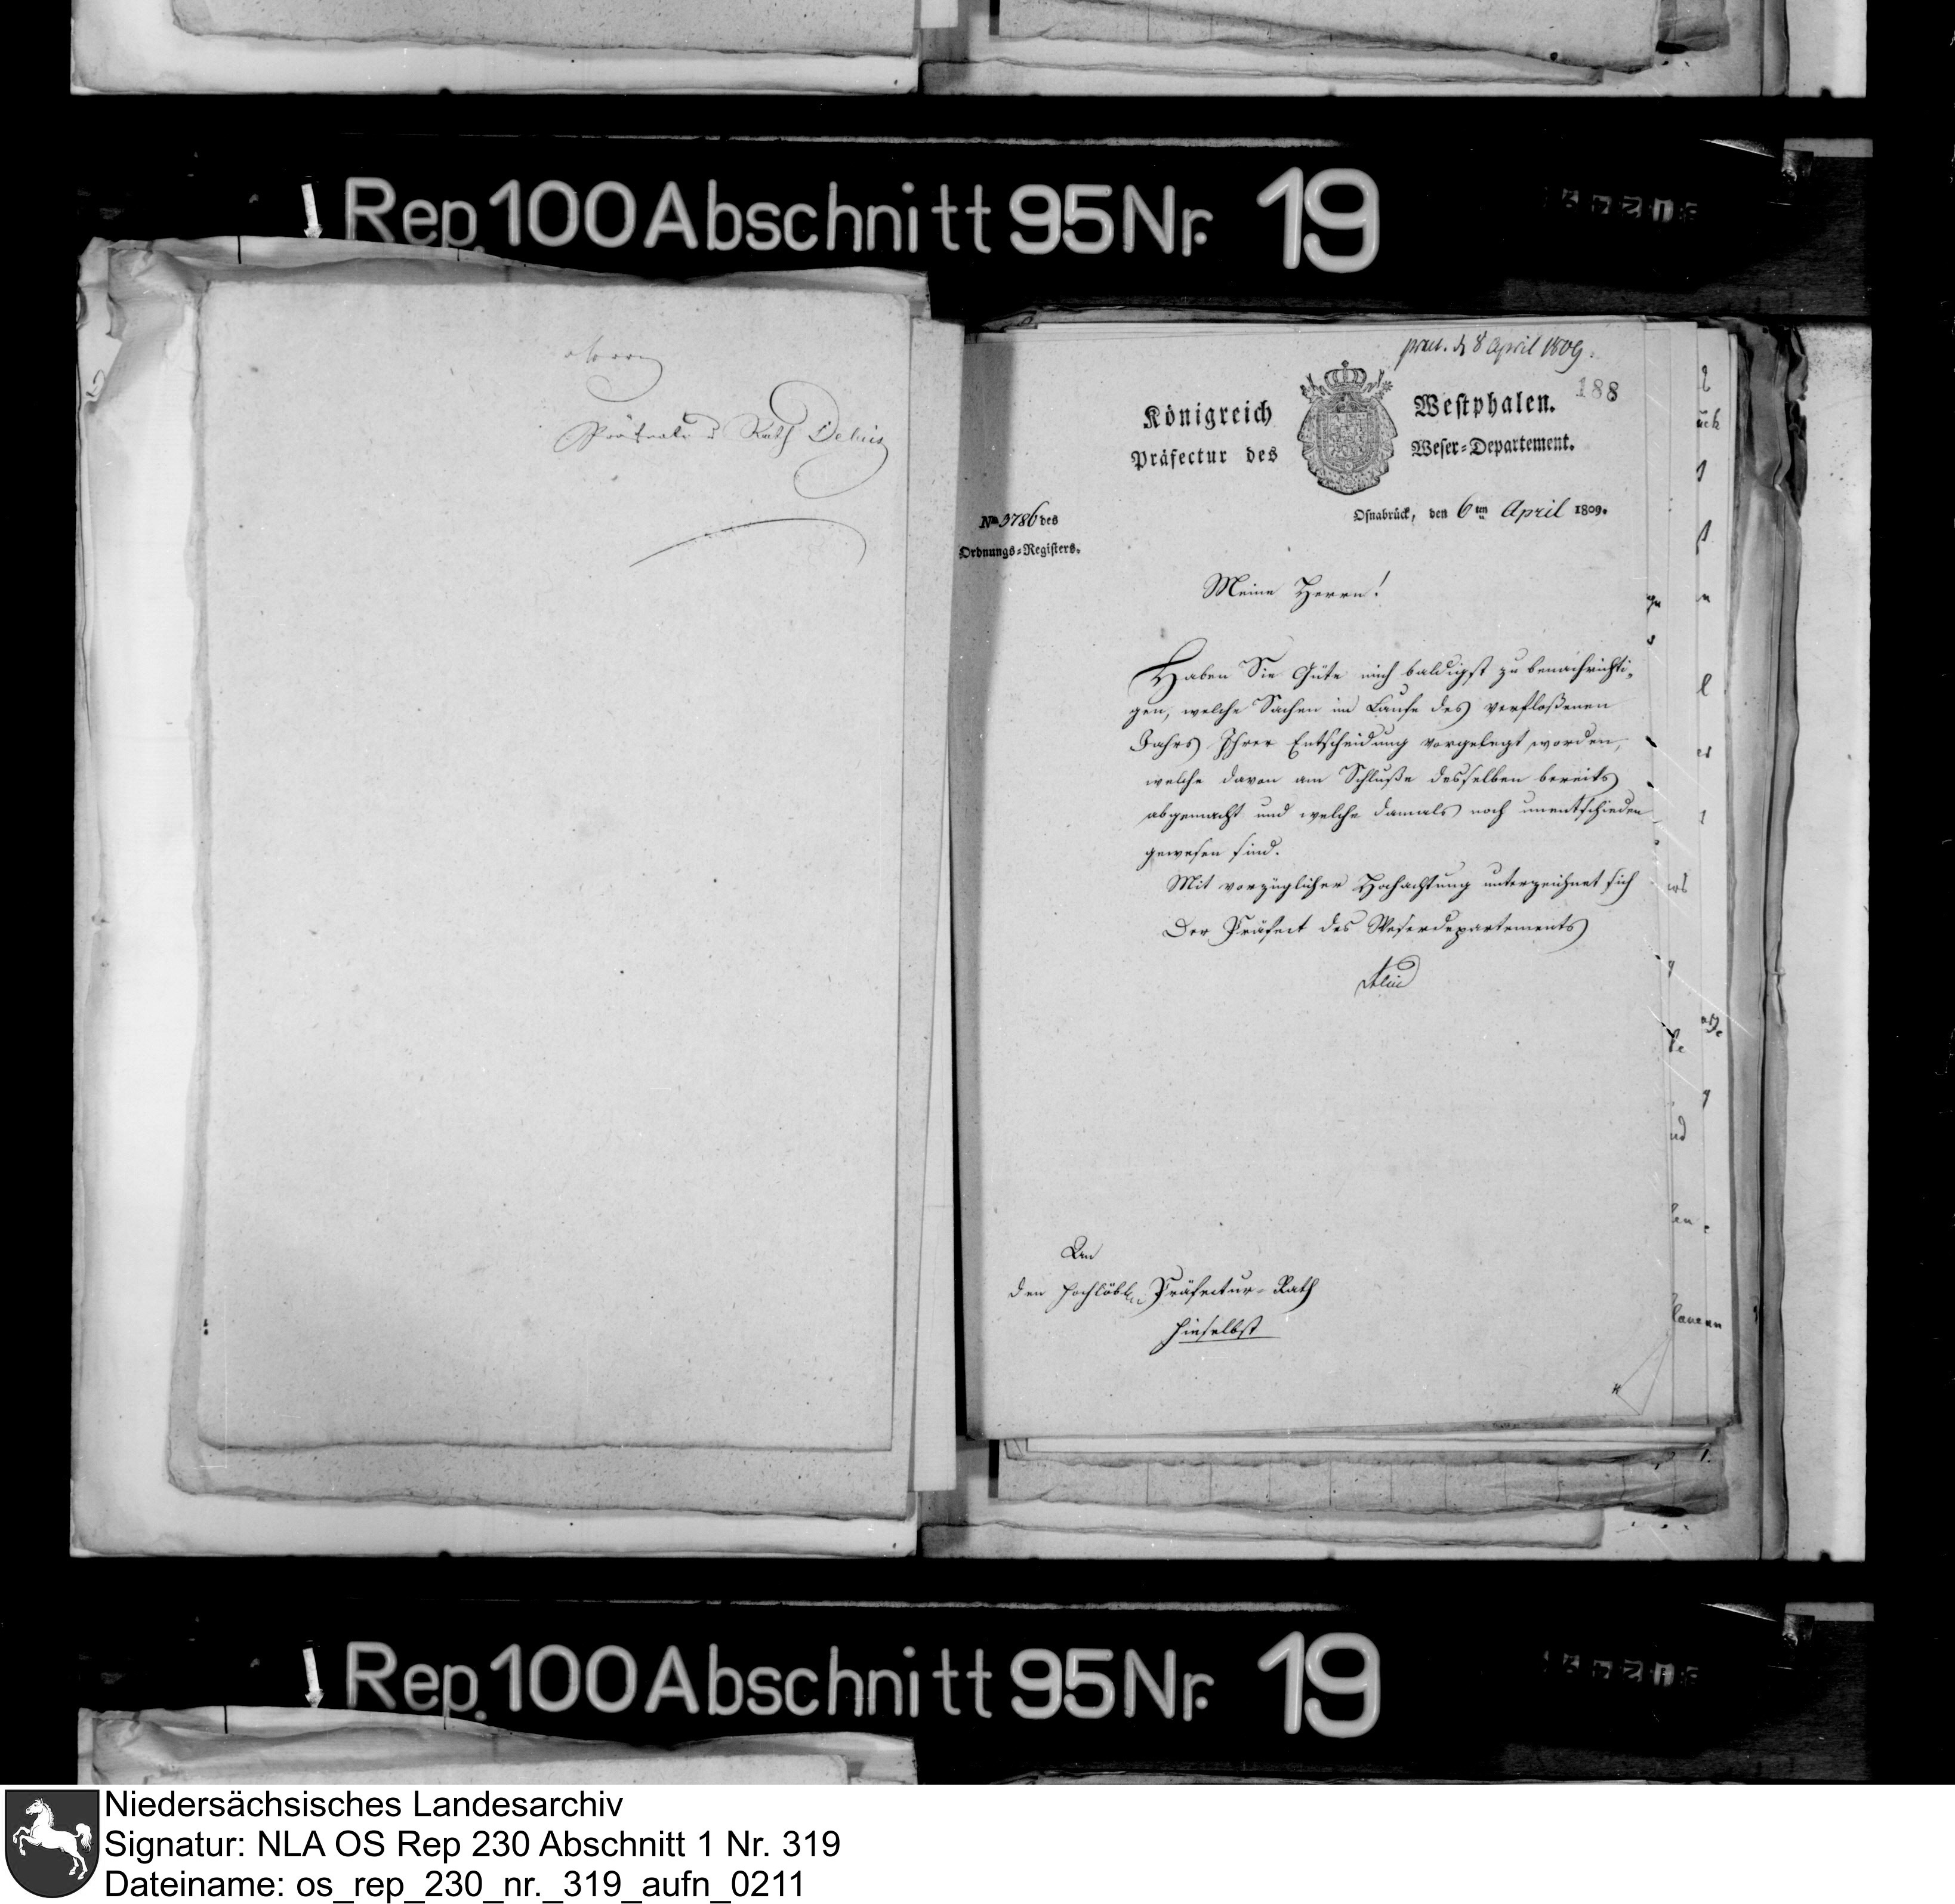 Rep. 100 Abschnitt 95 Nr. 19
Herrn
Präfectur Rath Delius
praes. d 8 April 1809.
188
Königreich Westphalen.
Präfectur des Weser-Departement.
No 3786 des
Ordnungs-Registers.
Osnabrück, den 6ten April 1809.
Meine Herrn!
Haben Sie Güte mich baldigst zu benachrichti-
gen, welche Sachen im Laufe des verfloßenen
Jahrs Ihrer Entscheidung vorgelegt worden,
welche davon am Schluße desselben bereits
abgemacht und welche damals noch unentschieden
gewesen sind.
Mit vorzüglicher Hochachtung unterzeichnet sich
Der Präfect des Weserdepartements
An
den hochlöbln Präfectur-Rath
hieselbst
Rep. 100 Abschnitt 95 Nr. 19
Niedersächsisches Landesarchiv
Signatur: NLA OS Rep 230 Abschnitt 1 Nr. 319
Dateiname: os_rep_230_nr._319_aufn_0211